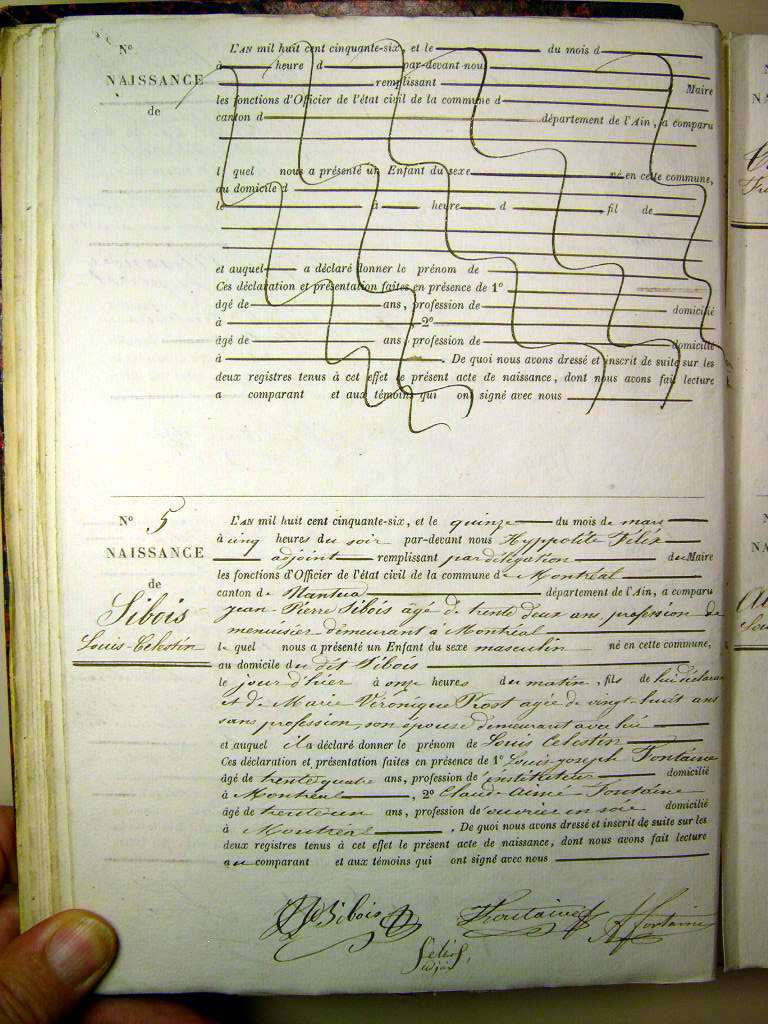 N°
NAISSANCE
de
L'AN mil huit cent cinquante-six, et le du mois d
à heure d par-devant nous
remplissant Maire
les fonctions d'Officier de l'état civil de la commune d
canton d département de l'Ain, a comparu
l quel nous a présenté un Enfant du sexe né en cette commune,
au domicile d
le à heure d fil de
et auquel a déclaré donner le prénom de
Ces déclaration et présentation faites en présence de 1°
âgé de ans, profession de domicilié
à , 2°
âgé de ans, profession de domicilié
à . De quoi nous avons dressé et inscrit de suite sur les
deux registres tenus à cet effet le présent acte de naissance, dont nous avons fait lecture
a comparant et aux témoins qui ont signé avec nous
N° 5
NAISSANCE
de
Sibois
Louis-Celestin
L'AN mil huit cent cinquante-six, et le quinze du mois de mars
à cinq heures du soir par-devant nous Hyppolite Félix
adjoint remplissant par délégation du Maire
les fonctions d'Officier de l'état civil de la commune de Montréal
canton de Nantua département de l'Ain, a comparu
jean-Pierre Sibois agé de trente deux ans, profession de
menuisier demeurant à Montréal
le quel nous a présenté un Enfant du sexe masculin né en cette commune,
au domicile du dit Sibois
le jour d'hier à onze heures du matin, fils de lui déclarant
et de Marie Véronique Prost agée de vingt-huit ans
sans profession, son épouse demeurant avec lui
et auquel il a déclaré donner le prénom de Louis Celestin
Ces déclaration et présentation faites en présence de 1° Louis-joseph Fontaine
âgé de trente quatre ans, profession d'instituteur domicilié
à Montréal, 2° Claude-Aimé Fontaine
âgé de trente un ans, profession d'ouvrier en soie domicilié
à Montréal. De quoi nous avons dressé et inscrit de suite sur les
deux registres tenus à cet effet le présent acte de naissance, dont nous avons fait lecture
au comparant et aux témoins qui ont signé avec nous
Sibois Fontaine A Fontaine
Félix
adjoint